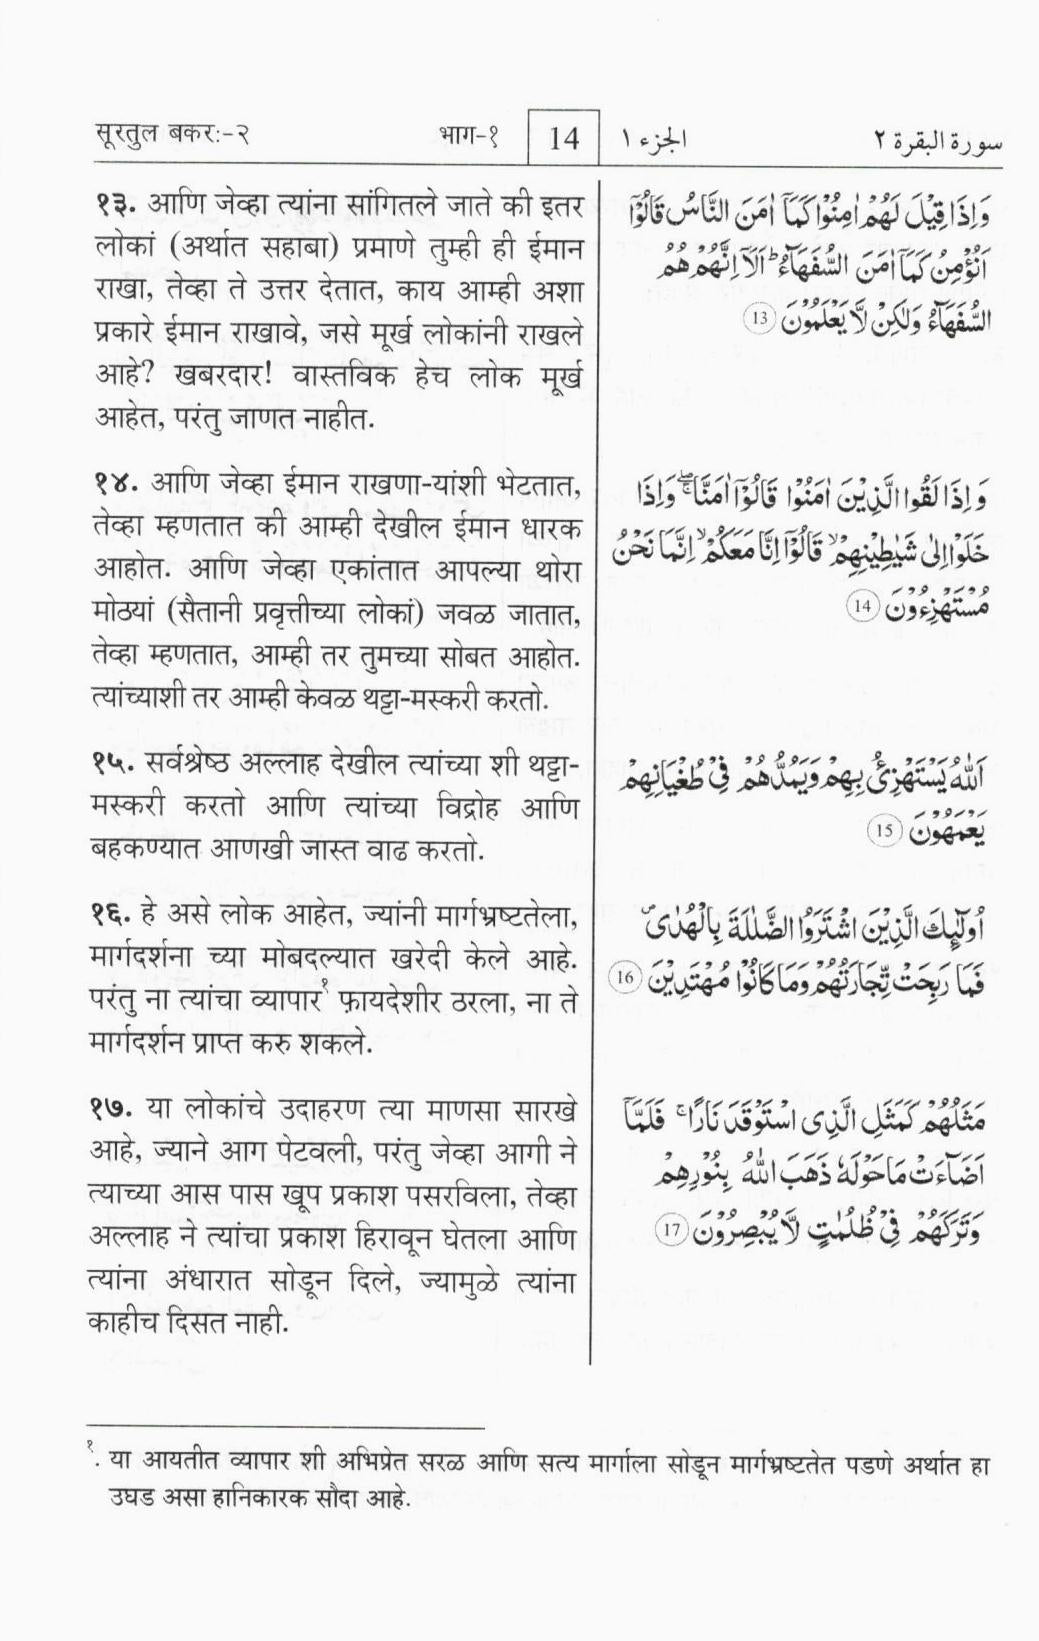 सूरतुल बकर:-२ भाग-१ 14 الجزء ١ سورة البقرة ٢
१३. आणि जेव्हा त्यांना सांगितले जाते की इतर
लोकां (अर्थात सहाबा) प्रमाणे तुम्ही ही ईमान
राखा, तेव्हा ते उत्तर देतात, काय आम्ही अशा
प्रकारे ईमान राखावे, जसे मूर्ख लोकांनी राखले
आहे? खबरदार! वास्तविक हेच लोक मूर्ख
आहेत, परंतु जाणत नाहीत.
وَاِذَا قِيْلَ لَهُمْ اٰمِنُوْا كَمَآ اٰمَنَ النَّاسُ قَالُوْٓا
اَنُؤْمِنُ كَمَآ اٰمَنَ السُّفَهَآءُ ؕ اَلَآ اِنَّهُمْ هُمُ
السُّفَهَآءُ وَلٰكِنْ لَّا يَعْلَمُوْنَ 13
१४. आणि जेव्हा ईमान राखणा-यांशी भेटतात,
तेव्हा म्हणतात की आम्ही देखील ईमान धारक
आहोत. आणि जेव्हा एकांतात आपल्या थोरा
मोठयां (सैतानी प्रवृत्तीच्या लोकां) जवळ जातात,
तेव्हा म्हणतात, आम्ही तर तुमच्या सोबत आहोत.
त्यांच्याशी तर आम्ही केवळ थट्टा-मस्करी करतो.
وَاِذَا لَقُوا الَّذِيْنَ اٰمَنُوْا قَالُوْٓا اٰمَنَّا ۖۚ وَاِذَا
خَلَوْا اِلٰى شَيٰطِيْنِهِمْ ۙ قَالُوْٓا اِنَّا مَعَكُمْ ۙ اِنَّمَا نَحْنُ
مُسْتَهْزِءُوْنَ 14
१५. सर्वश्रेष्ठ अल्लाह देखील त्यांच्या शी थट्टा-
मस्करी करतो आणि त्यांच्या विद्रोह आणि
बहकण्यात आणखी जास्त वाढ करतो.
اَللّٰهُ يَسْتَهْزِئُ بِهِمْ وَيَمُدُّهُمْ فِيْ طُغْيَانِهِمْ
يَعْمَهُوْنَ 15
१६. हे असे लोक आहेत, ज्यांनी मार्गभ्रष्टतेला,
मार्गदर्शना च्या मोबदल्यात खरेदी केले आहे.
परंतु ना त्यांचा व्यापार१ फ़ायदेशीर ठरला, ना ते
मार्गदर्शन प्राप्त करु शकले.
اُولٰٓئِكَ الَّذِيْنَ اشْتَرَوُا الضَّلٰلَةَ بِالْهُدٰى ۪
فَمَا رَبِحَتْ تِّجَارَتُهُمْ وَمَا كَانُوْا مُهْتَدِيْنَ 16
१७. या लोकांचे उदाहरण त्या माणसा सारखे
आहे, ज्याने आग पेटवली, परंतु जेव्हा आगी ने
त्याच्या आस पास खूप प्रकाश पसरविला, तेव्हा
अल्लाह ने त्यांचा प्रकाश हिरावून घेतला आणि
त्यांना अंधारात सोडून दिले, ज्यामुळे त्यांना
काहीच दिसत नाही.
مَثَلُهُمْ كَمَثَلِ الَّذِى اسْتَوْقَدَ نَارًا ۚ فَلَمَّآ
اَضَآءَتْ مَا حَوْلَهٗ ذَهَبَ اللّٰهُ بِنُوْرِهِمْ
وَتَرَكَهُمْ فِيْ ظُلُمٰتٍ لَّا يُبْصِرُوْنَ 17
१. या आयतीत व्यापार शी अभिप्रेत सरळ आणि सत्य मार्गाला सोडून मार्गभ्रष्टतेत पडणे अर्थात हा
उघड असा हानिकारक सौदा आहे.